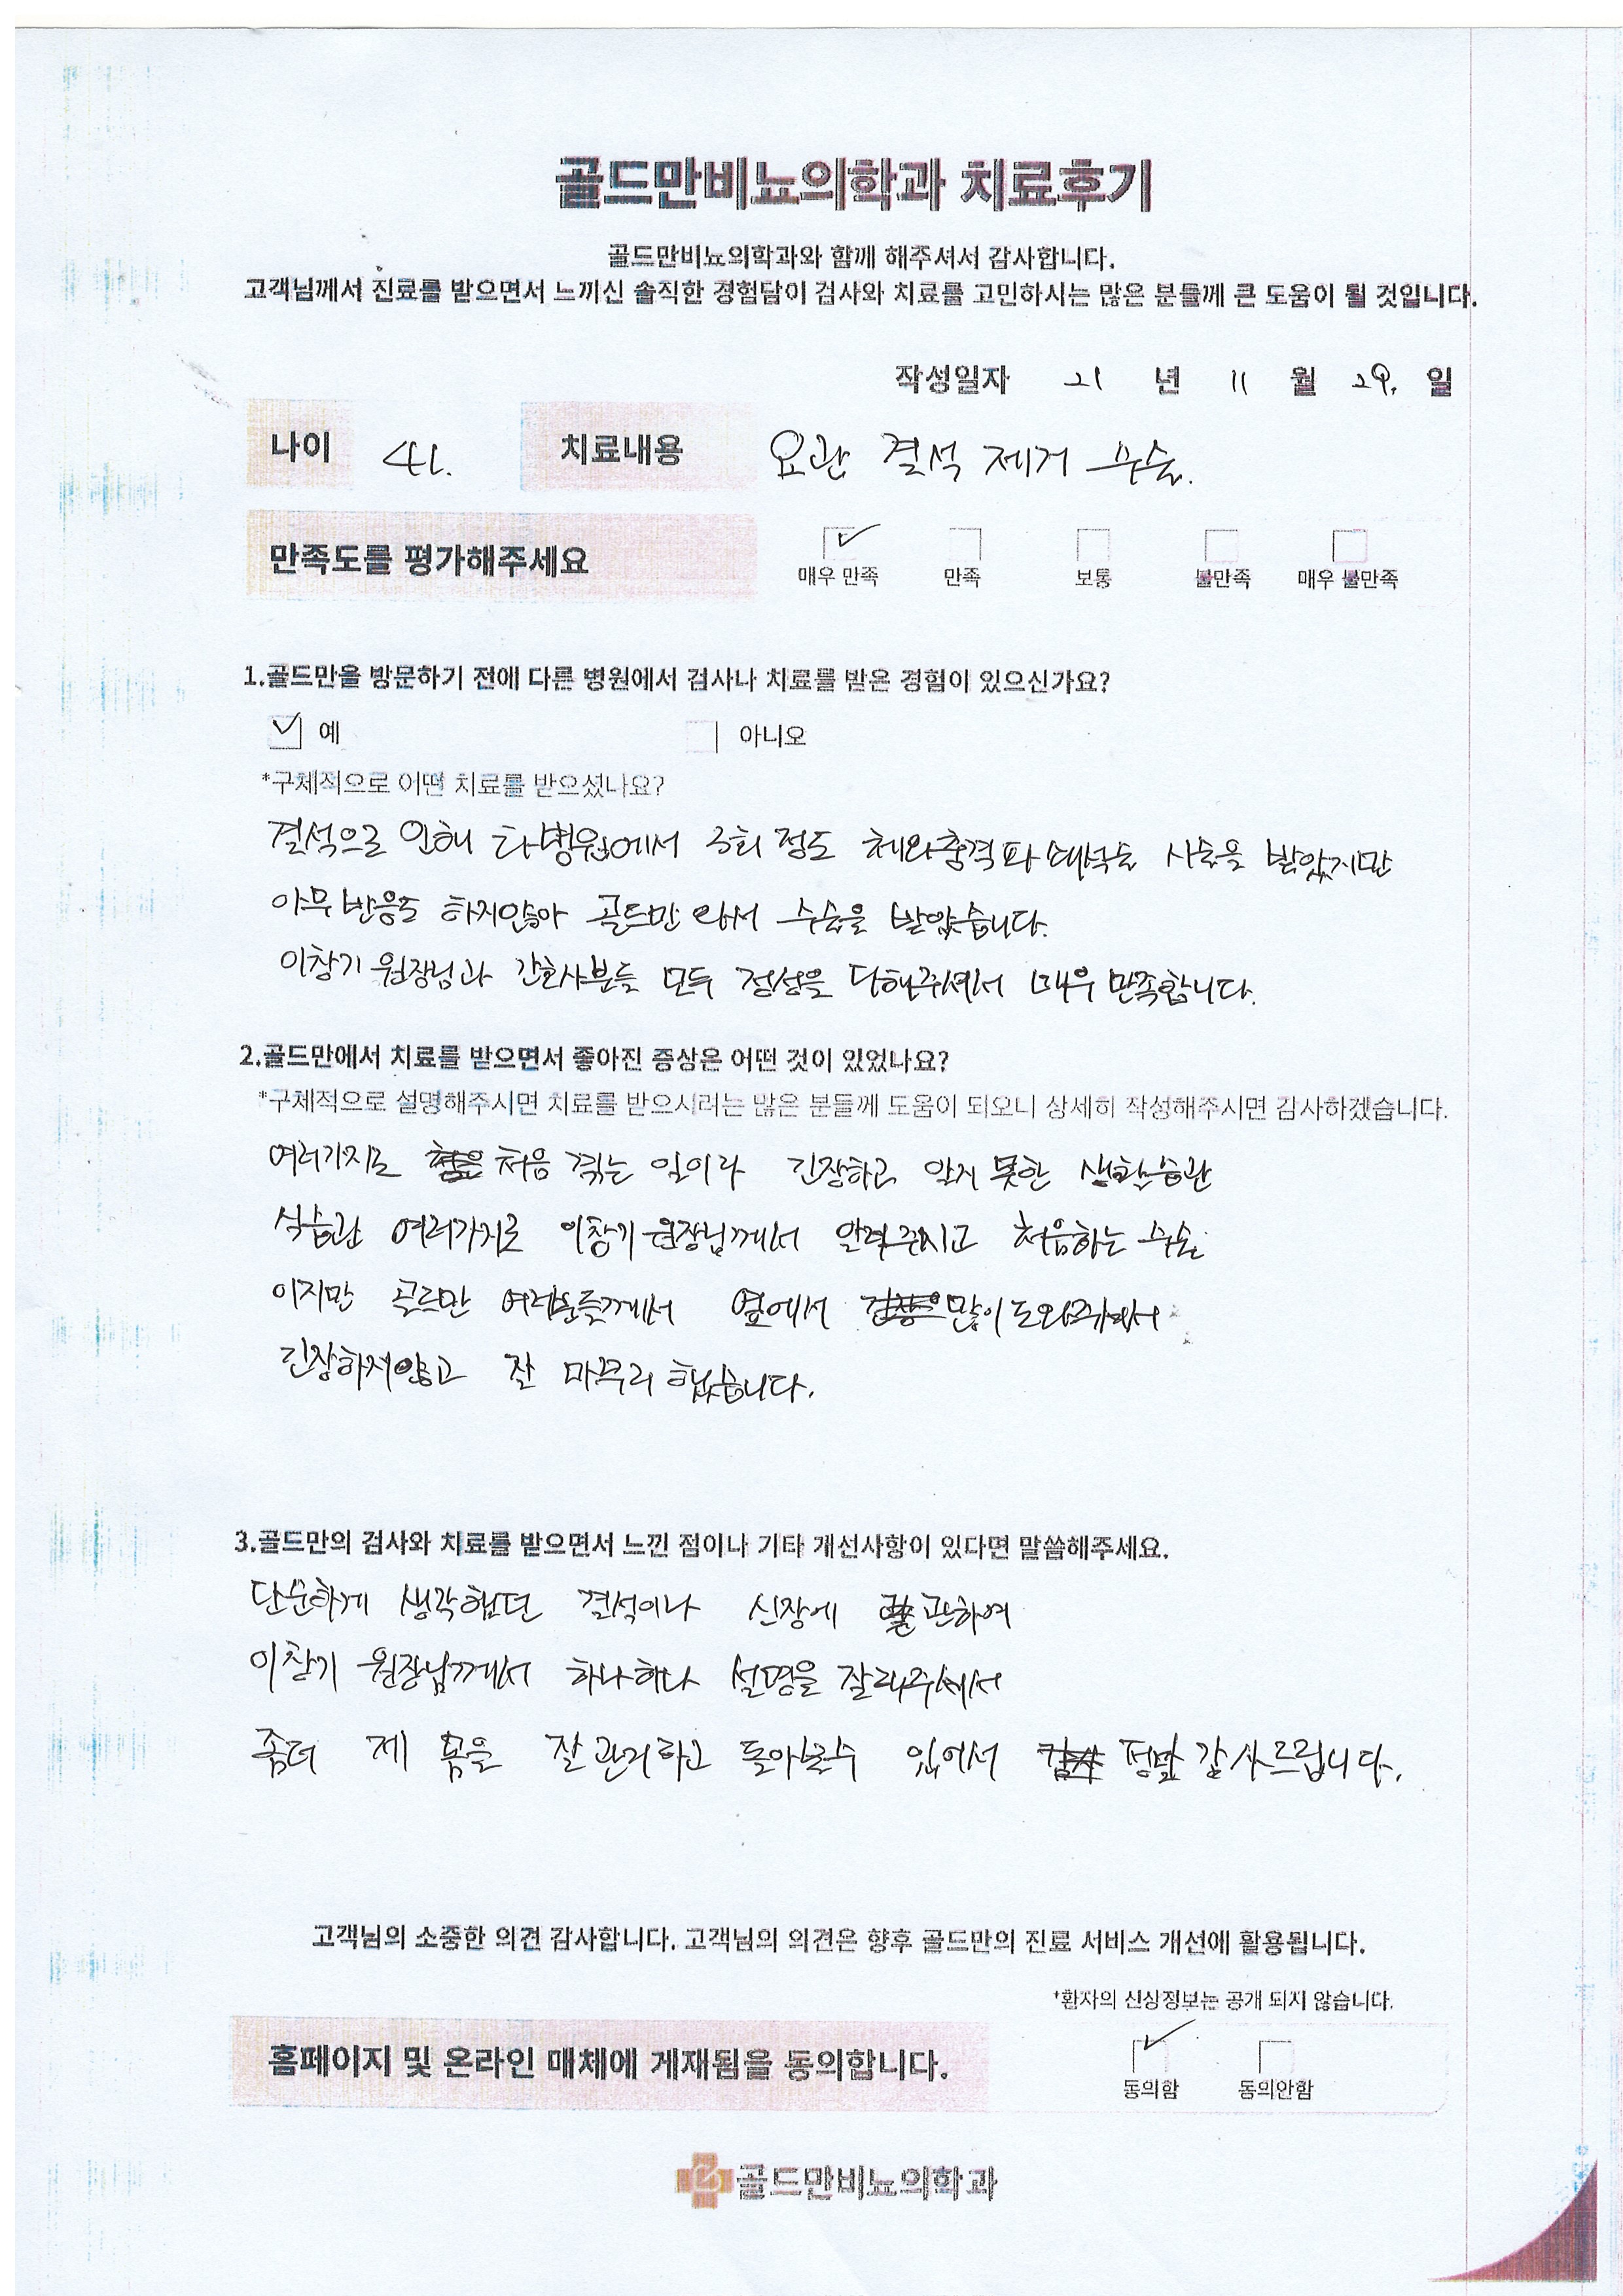 골드만비뇨의학과 치료후기
골드만비뇨의학과와 함께 해주셔서 감사합니다.
고객님께서 진료를 받으면서 느끼신 솔직한 경험담이 검사와 치료를 고민하시는 많은 분들께 큰 도움이 될 것입니다.
작성일자 21 년 11 월 29. 일
나이 41. 치료내용 요관 결석 제거 수술.
만족도를 평가해주세요
매우 만족 만족 보통 불만족 매우 불만족
1.골드만을 방문하기 전에 다른 병원에서 검사나 치료를 받은 경험이 있으신가요?
예 아니오
*구체적으로 어떤 치료를 받으셨나요?
결석으로 인해 타병원에서 3회 정도 체외충격파 쇄석술 시술을 받았지만
아무 반응도 하지않아 골드만 와서 수술을 받았습니다.
이창기 원장님과 간호사분들 모두 정성을 다해주셔서 매우 만족합니다.
2.골드만에서 치료를 받으면서 좋아진 증상은 어떤 것이 있었나요?
*구체적으로 설명해주시면 치료를 받으시려는 많은 분들께 도움이 되오니 상세히 작성해주시면 감사하겠습니다.
여러가지로 처음 겪는 일이라 긴장하고 알지 못한 생활습관
식습관 여러가지로 이창기 원장님께서 알려주시고 처음하는 수술
이지만 골드만 여러분들께서 옆에서 많이 도와주셔서
긴장하지않고 잘 마무리 했습니다.
3.골드만의 검사와 치료를 받으면서 느낀 점이나 기타 개선사항이 있다면 말씀해주세요.
단순하게 생각했던 결석이나 신장에 관하여
이창기 원장님께서 하나하나 설명을 잘해주셔서
좀더 제 몸을 잘 관리하고 돌아볼수 있어서 정말 감사드립니다.
고객님의 소중한 의견 감사합니다. 고객님의 의견은 향후 골드만의 진료 서비스 개선에 활용됩니다.
*환자의 신상정보는 공개 되지 않습니다.
홈페이지 및 온라인 매체에 게재됨을 동의합니다.
동의함 동의안함
골드만비뇨의학과